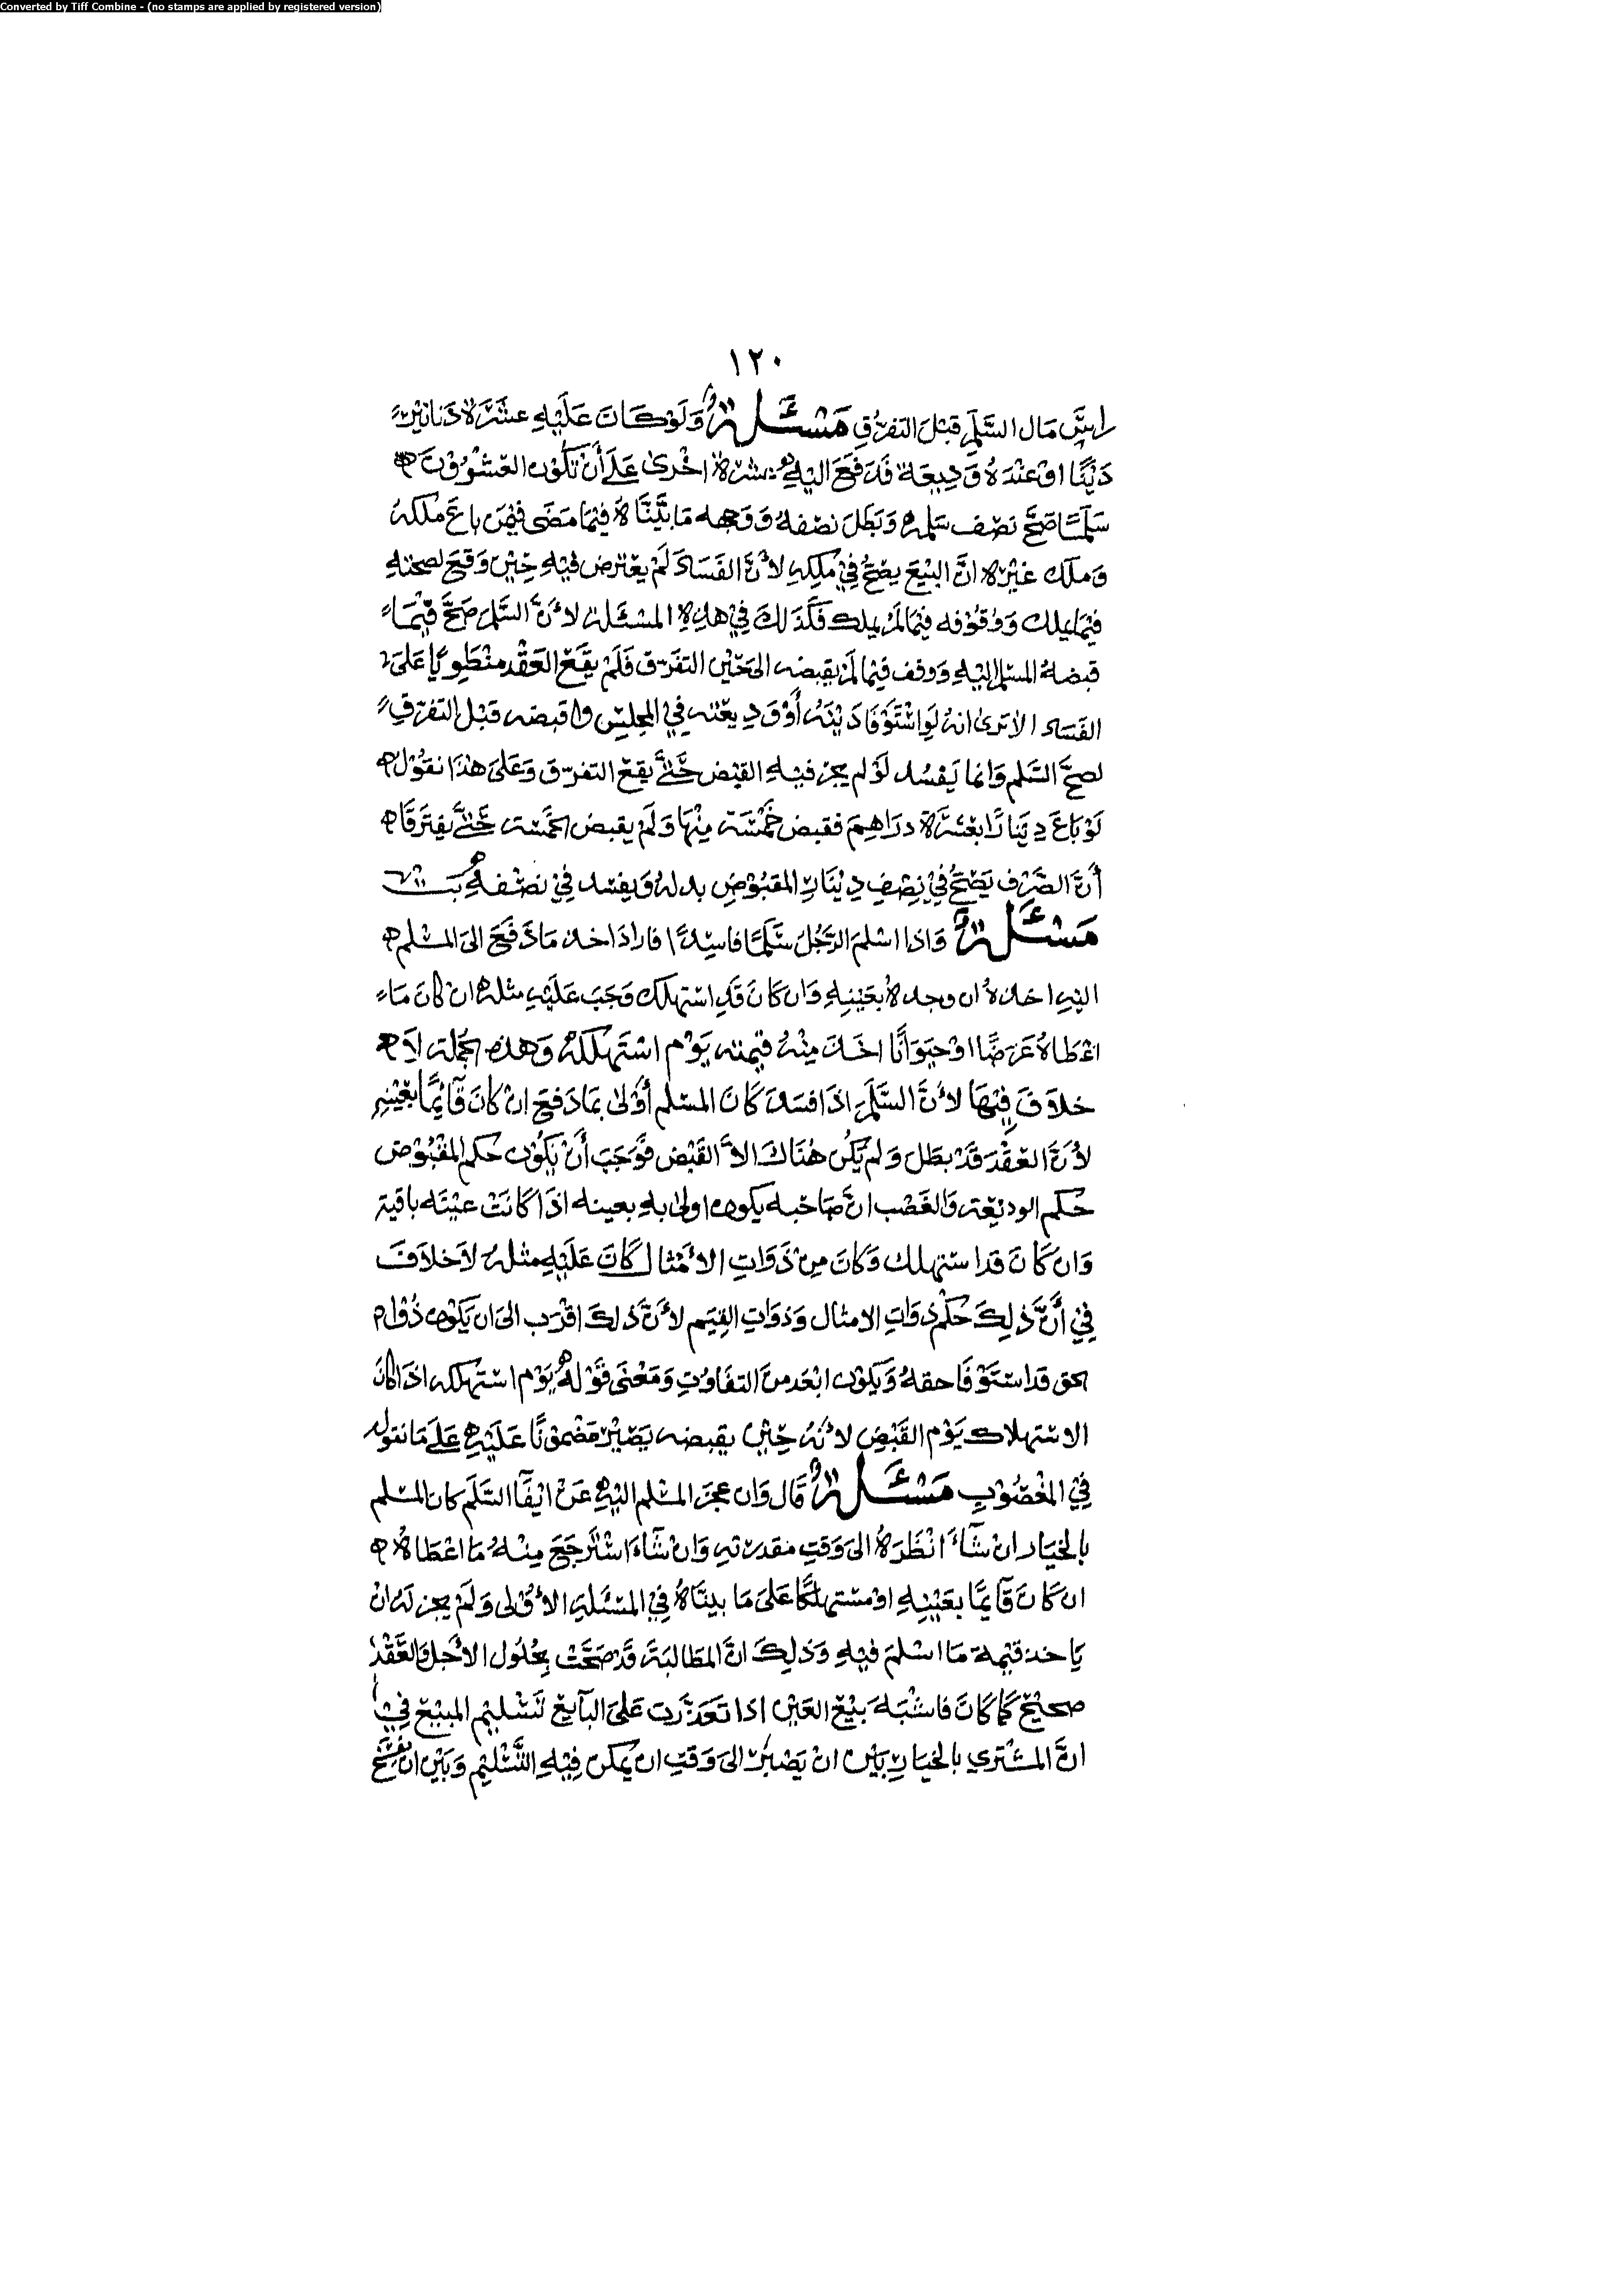 Converted by Tiff Combine - (no stamps are applied by registered version)
١٢٠
راس مال السَّلَم قبل التفرق مَسْئَلَةٌ وَلَوْ كَانَ عَلَيْهِ عشَرَة دَنانِيْر
دَيْنًا اوْ عنْدَهُ وَدِيعَة فَدَفَعَ اليْهِ عشرة اخْرىٰ عَلَى أَنْ تَكُوْن العشْرُوْنَ
سَلَمًا صَحَّ نصْف سَلمه وَبَطَلَ نصْفهُ وَوَجهه مَا بَيَّنَّاهُ فيْمَا مَضَى فيْمَن باعَ ملكهُ
وَملك غيْره انَّ البَيْعَ يصِّحُّ فِيْ مُلكِهِ لأنَّ الفَسَادَ لَمْ يعْترض فيْهِ حِيْن وَقعَ لصحتهِ
فيْمَا يملك وَوُقُوْفه فيْمَا لمْ يملك فَكَذَلِكَ فِيْ هذِهِ المسْئَلة لأنَّ السَّلم صَحَّ فيْمَا
قبضهُ المسْلم اليْهِ وَوقف فيْما لمْ يقبضه الى حيْن التفَرّق فَلَمْ يقَع العَقْد منْطَوِيًا عَلىَ
الفَسَاد الا ترىٰ انهُ لَوِ اسْتَوْفَا دَيْنَهُ أوْ وَدِيعَته فِي المجلِس واقبضه قبْل التفرّقِ
لصحَّ السَّلم وَانما يَفسُد لَوْ لم يجر فيْهِ القبْض حَتَّى يقعَ التفرّق وَعَلىَ هٰذَا نقوْل
لَوْ بَاعَ دِيْنارًا بعَشَرَة درَاهِمَ فقبض خَمْسَة مِنْهَا وَلَمْ يقبض الخمَسَة حَتَّى يفترَقَا
أَنَّ الصَّرْف يَصِحُّ فِيْ نِصْفِ دِيْنَارِ المقبُوْضِ بدلهُ وَيفسد فِيْ نصْفهِ
مَسْئَلَةٌ وَاذا اسْلمَ الرَّجُلُ سَلَمًا فاسِدًا فارادَ اخذ مَا دَفَعَ الىَ المسْلم
اليْهِ اخذهُ ان وجدهُ بعَيْنِهِ وَان كَانَ قَدِ اسْتهلك وَجَبَ عَلَيْهِ مثلهُ ان كَانَ مَا
اعْطَاهُ عَرَضًا اوْ حَيَوَانًا اخَذَ مِنْهُ قيْمته يَوْم اسْتَهْلَكَهُ وَهٰذهِ الجمْلة لاَ
خلاَفَ فِيْهَا لأنَّ السَّلَمَ اذَا فسَدَ كَانَ المسْلم أَوْلىٰ بمَا دَفعَ انْ كَانَ قَآئِمًا بعَيْنِهِ
لأَنَّ العَقْدَ قَدْ بطَل وَلمْ يَكُنْ هُنَاكَ الاَّ القَبْض فوَجَبَ أَنْ يَكُوْن حكم المقْبُوْض
حُكم الوديْعَة وَالغَصْب انَّ صَاحبه يكون اولىٰ بهِ بعينه اذَا كَانَتْ عيْنَه باقيَة
وَان كَانَ قد استهلك وَكَانَ مِنْ ذَوَاتِ الأمْثال كَانَ عَلَيْهِ مثلهُ لاَ خلاَفَ
فِيْ أَنَّ ذَلِكَ حُكْم ذوَاتِ الامثال وَذوَاتِ القِيَم لأَنَّ ذلكَ اقْرَب الىَ ان يَكوْن ذُوْا
لحق قد اسْتَوْفَا حقهُ وَيكوْن ابْعَد منَ التفَاوُتِ وَمَعْنَى قَوْلهُ يَوْم اسْتهْلكه اذَا كَانَ
الاسْتهلاك يَوْم القَبْضِ لأنهُ حِيْن يقبضه يَصيْرُ مَضْموْنًا عَلَيْهِ عَلَى مَا نقوله
فِيْ المغْصُوْبِ مَسْئَلَةٌ قَال وَان عجزَ المسْلم اليْهِ عَنْ ايْفَآ السَّلَم كان المسْلم
بالخيَار ان شَآءَ انْظَرَهُ الىَ وَقتِ مقدرتهِ وَانْ شَآءَ اسْترْجَعَ مِنْهُ مَا اعْطَاهُ
ان كَانَ قَآئِمًا بعَيْنِهِ اوْ مسْتهلكًا عَلىَ مَا بيناهُ فِيْ المسْئَلةِ الأوْلى وَلَمْ يجز لهُ انْ
يَاخذ قيْمة مَا اسْلمَ فيْهِ وَذلِكَ انَّ المطَالبَةَ قَدْ صَحَّتْ بِحُلُوْل الأَجل وَالعَقْدْ
صحيْحٌ كَمَا كَانَ فاشْبَهَ بَيْعَ العَيْن اذا تعَذَّرَت عَلىَ البَآئع تَسْليم المبيْع فِيْ
انَّ المشْتري بالخيَارِ بَيْن انْ يَصْبرْ الىَ وَقتِ ان يُمْكن فِيْهِ التَّسْليْم وَبَيْن ان يفْسَخ